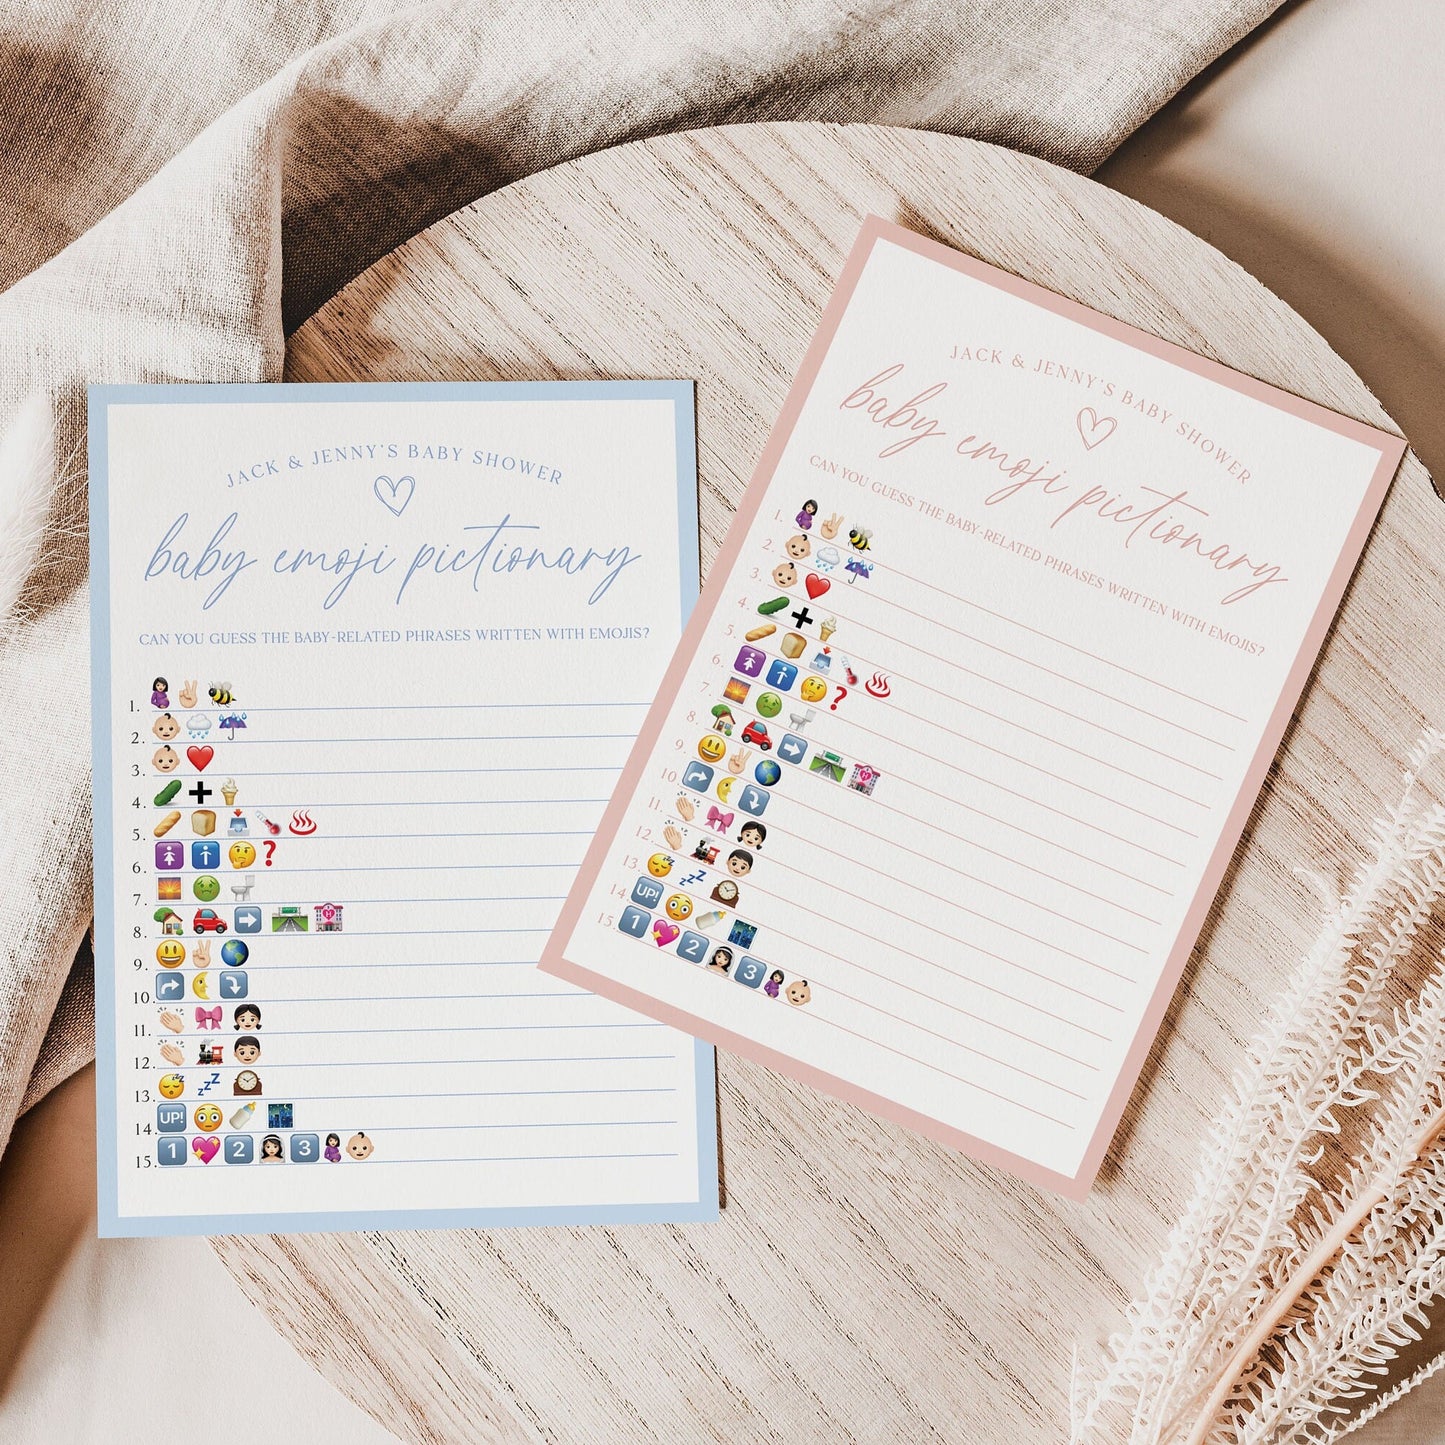 JACK & JENNY'S BABY SHOWER
baby emoji pictionary
CAN YOU GUESS THE BABY-RELATED PHRASES WRITTEN WITH EMOJIS?
1. 🤰🏻✌🏻🐝
2. 👶🏻🌧️☔
3. 👶🏻❤️
4. 🥒➕🍦
5. 🥖🍞📥🌡️♨️
6. 🚺🚹🤔❓
7. 🌅🤢🚽
8. 🏡🚗➡️🛣️🏩
9. 😃✌🏻🌎
10. ↪️🌛⤵️
11. 👏🏻🎀👧🏻
12. 👏🏻🚂👦🏻
13. 😴💤🕰️
14. UP! 😳🍼🌃
15. 1 💖 2 👰🏻 3 🤰🏻👶🏻
JACK & JENNY'S BABY SHOWER
baby emoji pictionary
CAN YOU GUESS THE BABY-RELATED PHRASES WRITTEN WITH EMOJIS?
1. 🤰🏻✌🏻🐝
2. 👶🏻🌧️☔
3. 👶🏻❤️
4. 🥒➕🍦
5. 🥖🍞📥🌡️♨️
6. 🚺🚹🤔❓
7. 🌅🤢🚽
8. 🏡🚗➡️🛣️🏩
9. 😃✌🏻🌎
10 ↪️🌛⤵️
11. 👏🏻🎀👧🏻
12. 👏🏻🚂👦🏻
13. 😴💤🕰️
14. UP! 😳🍼🌃
15. 1 💖 2 👰🏻 3 🤰🏻👶🏻